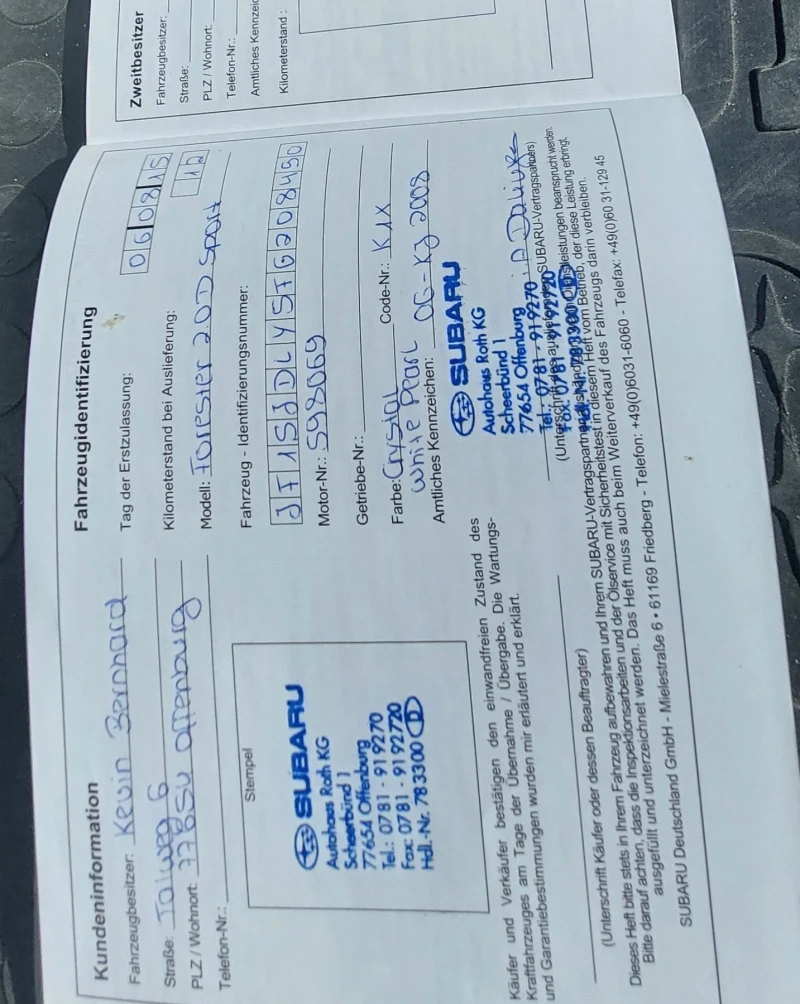 Kundeninformation
Fahrzeugbesitzer: Kevin Bernhard
Straße: Talweg 6
PLZ / Wohnort: Offenburg
Telefon-Nr.:
Stempel
SUBARU
Autohaus Roth KG
Scheerbünd 1
77654 Offenburg
Tel.: 07 81 - 91 92 70
Fax: 07 81 - 91 92 720
Hdl.-Nr. 783300 D
Käufer und Verkäufer bestätigen den einwandfreien Zustand des
Kraftfahrzeuges am Tage der Übernahme / Übergabe. Die Wartungs-
und Garantiebestimmungen wurden mir erläutert und erklärt.
(Unterschrift Käufer oder dessen Beauftragter)
Fahrzeugidentifizierung
Tag der Erstzulassung: 06 08 15
Kilometerstand bei Auslieferung: 12
Modell: Forester 2.0D Sport
Fahrzeug - Identifizierungsnummer:
JF1SJDLY5FG208450
Motor-Nr.: S98069
Getriebe-Nr.:
Farbe: Crystal White Pearl Code-Nr.: K1X
Amtliches Kennzeichen: OG-KJ 2008
SUBARU
Autohaus Roth KG
Scheerbünd 1
77654 Offenburg
Tel.: 07 81 - 91 92 70
Fax: 07 81 - 91 92 720
Hdl.-Nr. 783300 D
(Unterschrift des SUBARU-Vertragspartners)
Dieses Heft bitte stets in Ihrem Fahrzeug aufbewahren und Ihrem SUBARU-Vertragspartner leistungen beansprucht werden.
Bitte darauf achten, dass die Inspektionsarbeiten und der Ölservice mit Sicherheitstest in diesem Heft vom Betrieb, der diese Leistung erbringt,
ausgefüllt und unterzeichnet werden. Das Heft muss auch beim Weiterverkauf des Fahrzeugs darin verbleiben.
SUBARU Deutschland GmbH - Mielestraße 6 • 61169 Friedberg - Telefon: +49(0)6031-6060 - Telefax: +49(0)60 31-129 45
Zweitbesitzer
Fahrzeugbesitzer:
Straße:
PLZ / Wohnort:
Telefon-Nr.:
Amtliches Kennzei
Kilometerstand :